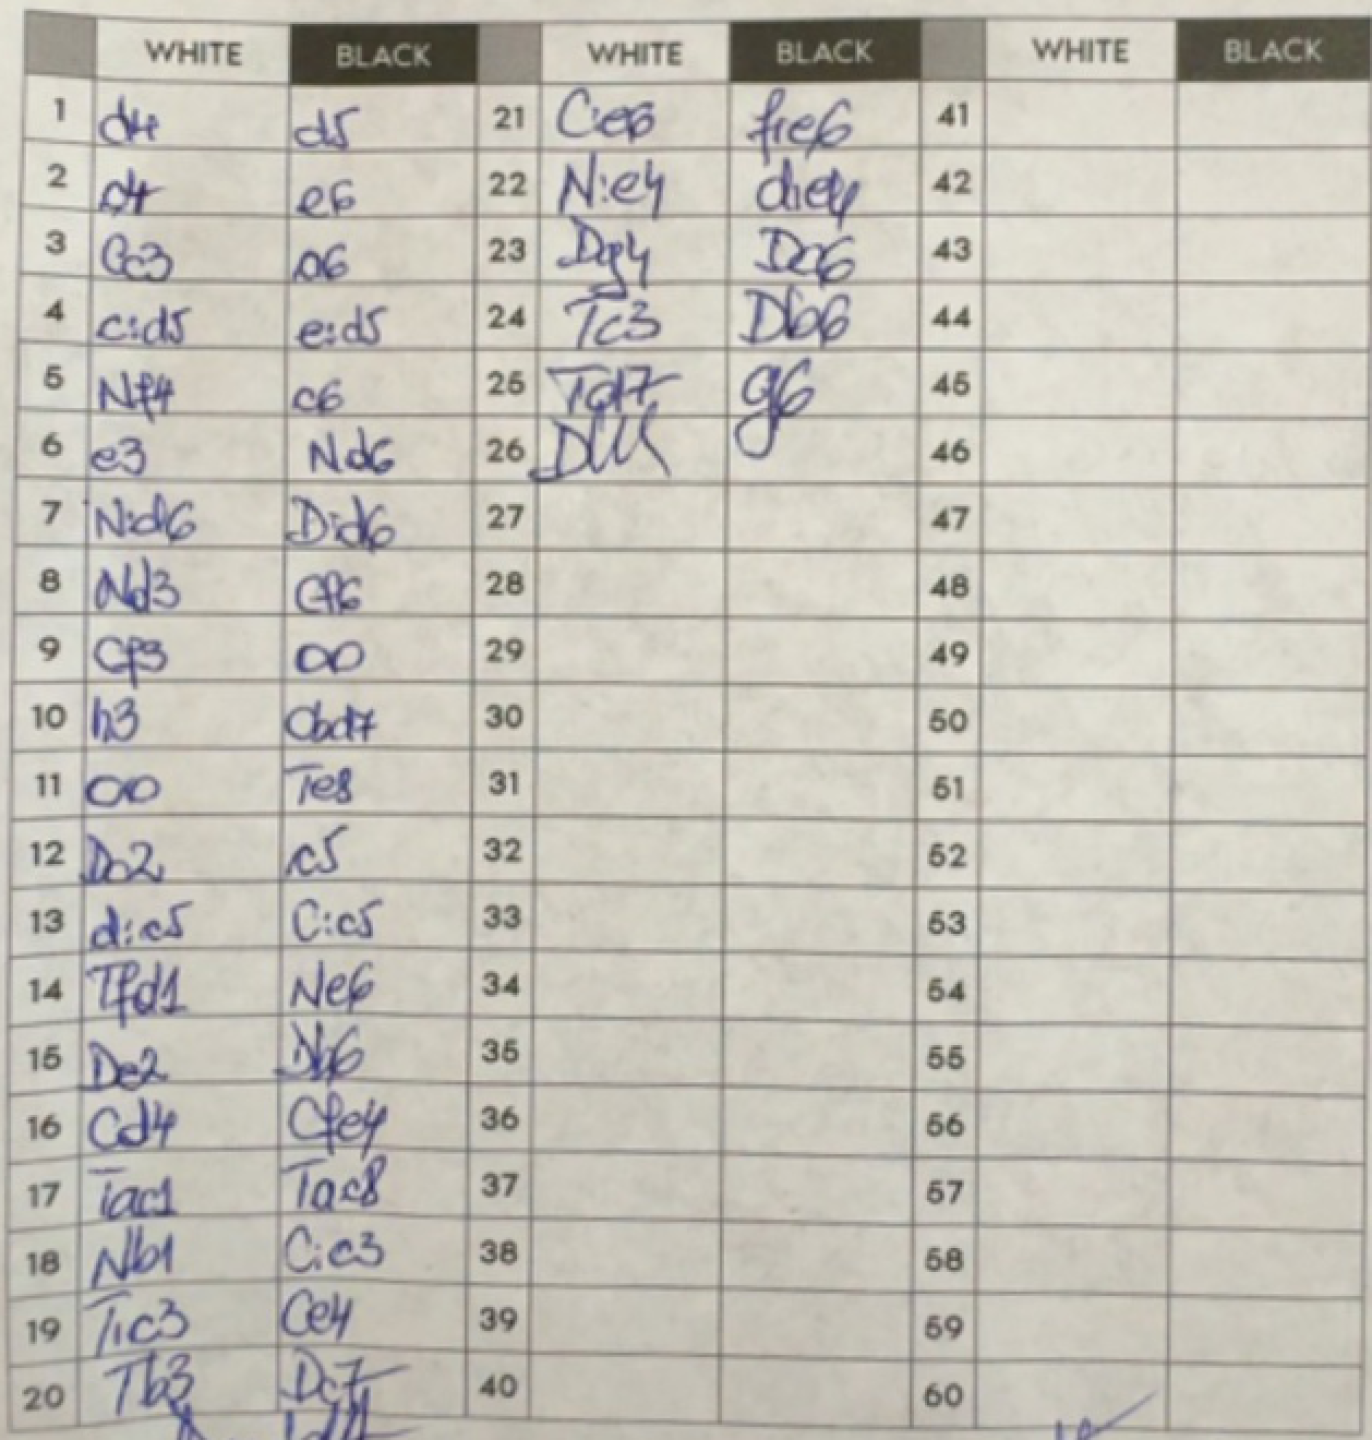 WHITE BLACK WHITE BLACK WHITE BLACK
1 d4 d5 21 C:e6 f:e6 41
2 c4 e6 22 N:e4 d:e4 42
3 Cc3 a6 23 Dg4 Da6 43
4 c:d5 e:d5 24 Tc3 Db6 44
5 Nf4 c6 25 Td7 g6 45
6 e3 Nd6 26 46
7 N:d6 D:d6 27 47
8 Nd3 Cf6 28 48
9 Cf3 00 29 49
10 h3 Cbd7 30 50
11 00 Te8 31 51
12 Dc2 c5 32 52
13 d:c5 C:c5 33 53
14 Tfd1 Ne6 34 54
15 De2 Db6 35 55
16 Cd4 Cfe4 36 56
17 Tac1 Tac8 37 57
18 Nb1 C:c3 38 58
19 T:c3 Ce4 39 59
20 Tb3 Dc7 40 60